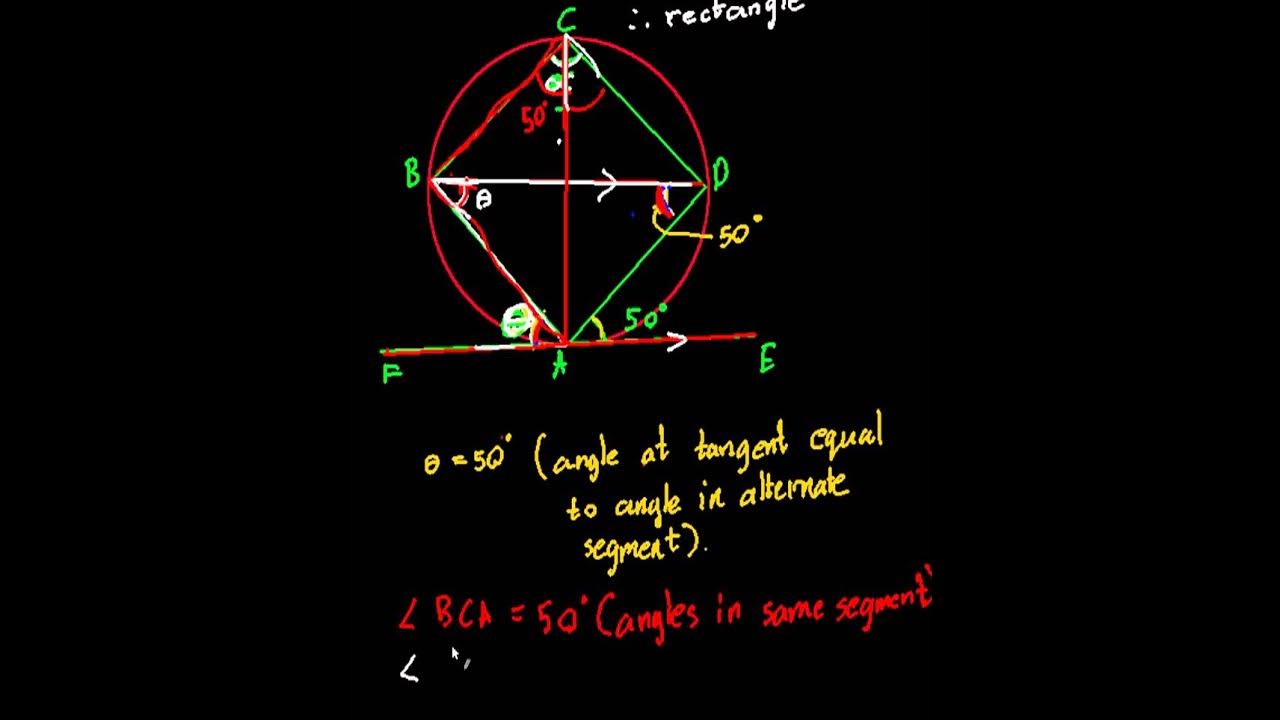 C
∴ rectangle
θ
50°
B
D
θ
50°
θ
50°
F
A
E
θ = 50° (angle at tangent equal
to angle in alternate
segment).
∠ BCA = 50° (angles in same segment)
∠